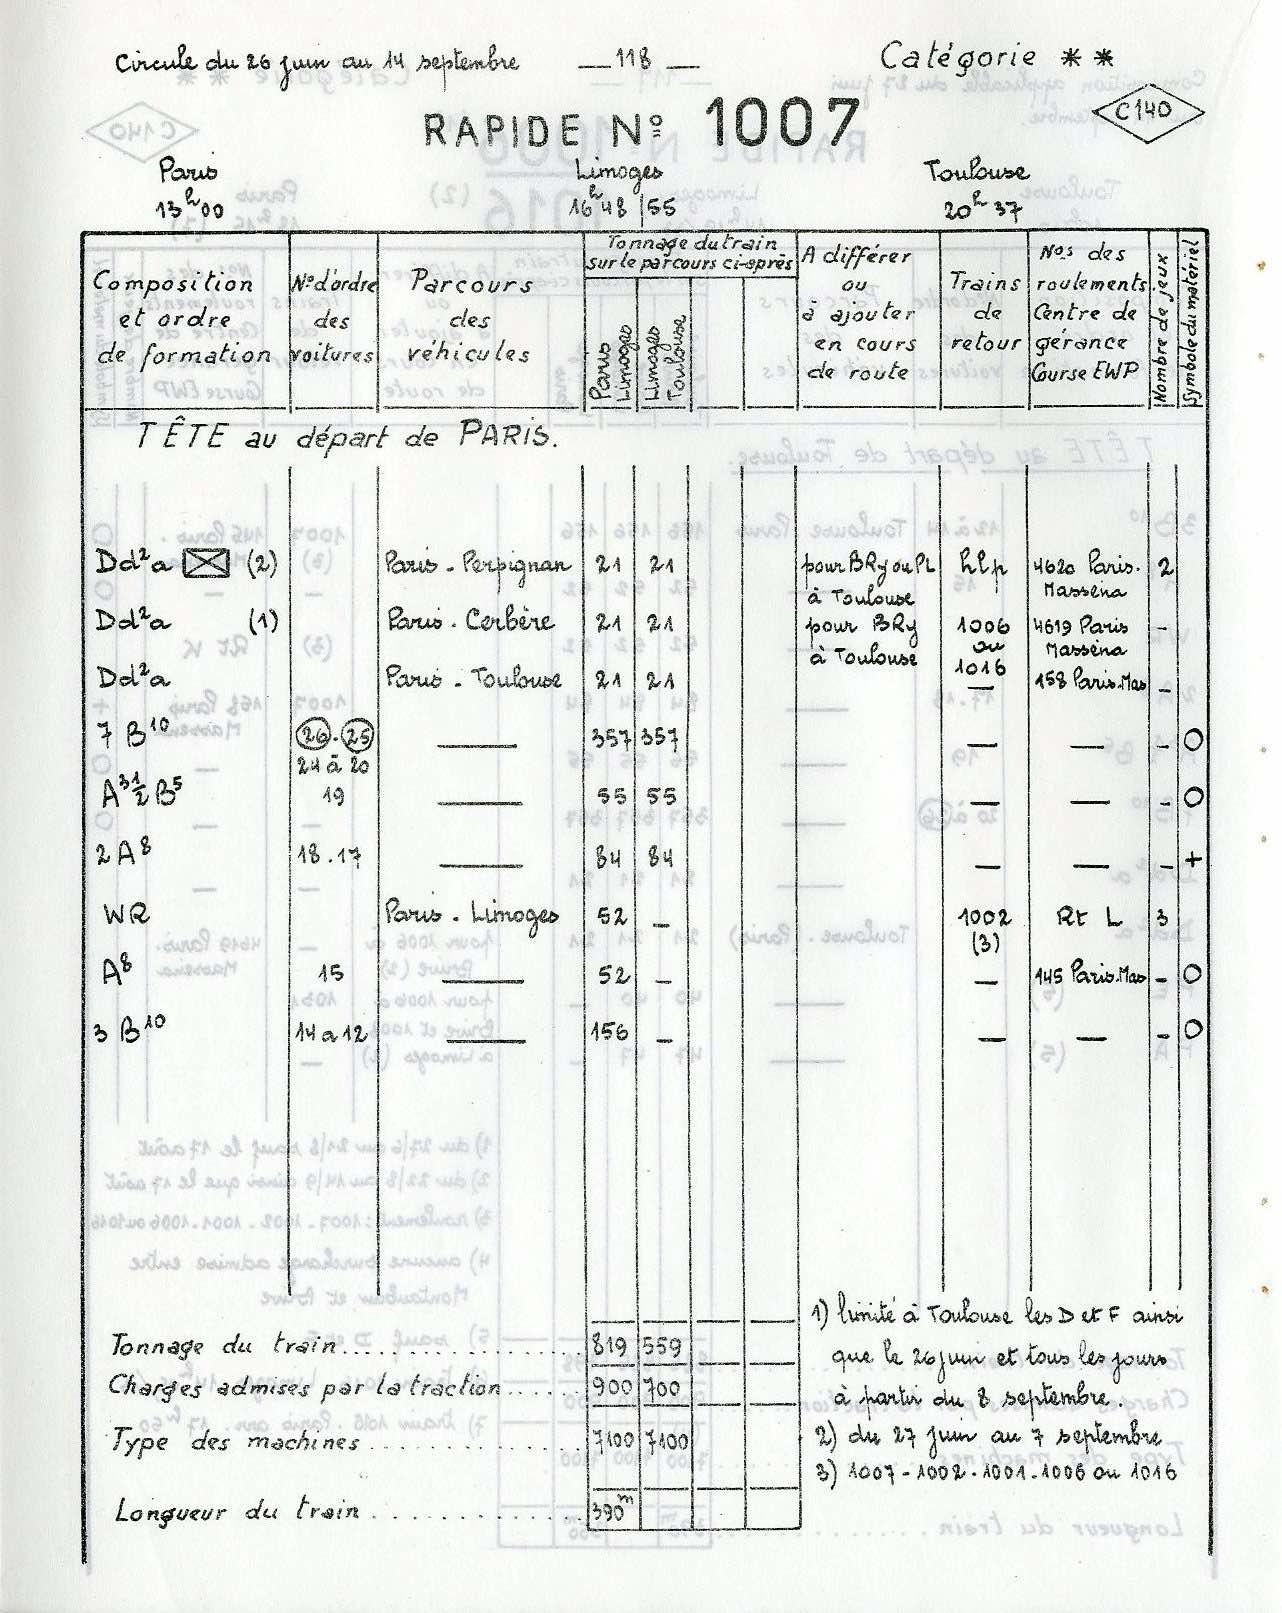 Circule du 26 juin au 14 septembre — 118 — Catégorie * *
RAPIDE Nº 1007 C140
Paris Limoges Toulouse
13h00 16h48/55 20h37
Composition et ordre de formation
Nº d'ordre des voitures
Parcours des véhicules
Tonnage du train sur le parcours ci-après
Paris Limoges
Limoges Toulouse
A différer ou à ajouter en cours de route
Trains de retour
Nos des roulements Centre de gérance Course EWP
Nombre de jeux
Symbole du matériel
TÊTE au départ de PARIS.
Dd²a (2) Paris - Perpignan 21 21 pour BRy ou PL à Toulouse hlp 4620 Paris. Masséna 2
Dd²a (1) Paris - Cerbère 21 21 pour BRy à Toulouse 1006 ou 1016 4619 Paris Masséna -
Dd²a Paris - Toulouse 21 21 — 158 Paris.Mas -
7 B10 26.25 24 à 20 — 357 357 — — - O
A3½B5 19 — 55 55 — — - O
2 A8 18.17 — 84 84 — — - +
WR Paris - Limoges 52 — 1002 (3) Rt L 3
A8 15 — 52 — — 145 Paris.Mas - O
3 B10 14 a 12 — 156 — — — - O
Tonnage du train.................. 819 559
Charges admises par la traction...... 900 700
Type des machines............... 7100 7100
Longueur du train............. 390m
1) limité à Toulouse les D et F ainsi
que le 26 juin et tous les jours
à partir du 8 septembre.
2) du 27 juin au 7 septembre
3) 1007 - 1002 - 1001 - 1006 ou 1016